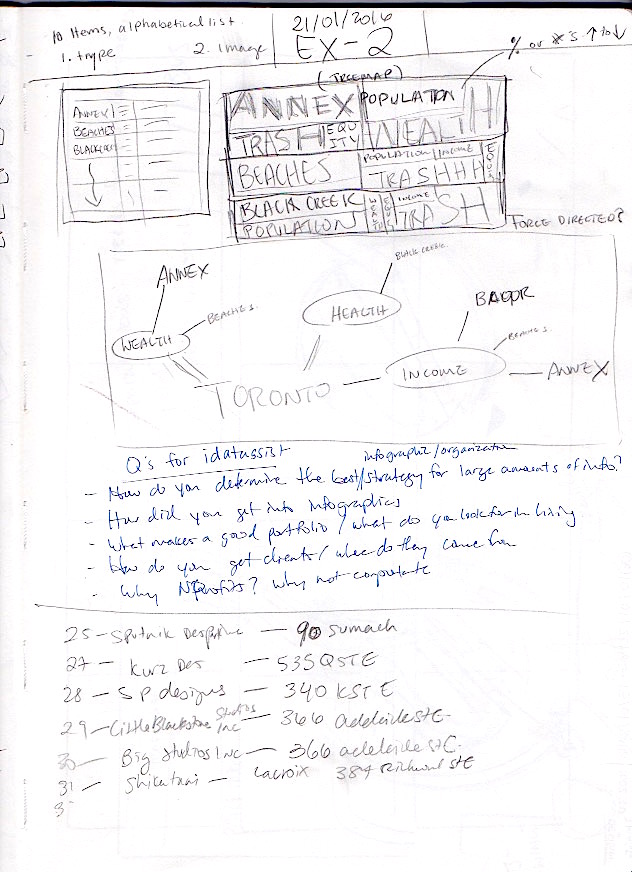 10 Items, alphabetical list
1. type 2. image
21/01/2016
EX-2
% or #'s ↑ to ↓
(TREEMAP)
ANNEX
BEACHES
BLACKCREEK
ANNEX POPULATION
TRASH EQUITY WEALTH
BEACHES POPULATION INCOME EQUI
TRASHHHH
BLACK CREEK WEALTH EQUI INCOME
POPULATION TRASH
FORCE DIRECTED?
ANNEX
BLACK CREEK
BEACHES
WEALTH
HEALTH
BEACHES
TORONTO
INCOME
ANNEX
Q's for idatassist
infographic/organization
- How do you determine the best/strategy for large amounts of info?
- How did you get into infographics
- What makes a good portfolio / what do you look for in hiring
- How do you get clients / where do they come from
- Why Nonprofits? Why not corporate
25 - Sputnik — 90 Sumach
27 - Kurz Des — 535 Q ST E
28 - SP designs — 340 K ST E
29 - Little Blackstone Studios Inc — 366 adelaide st E
30 - Big Studios Inc — 366 adelaide st E
31 - — Lacroix 384 Richmond St E
3